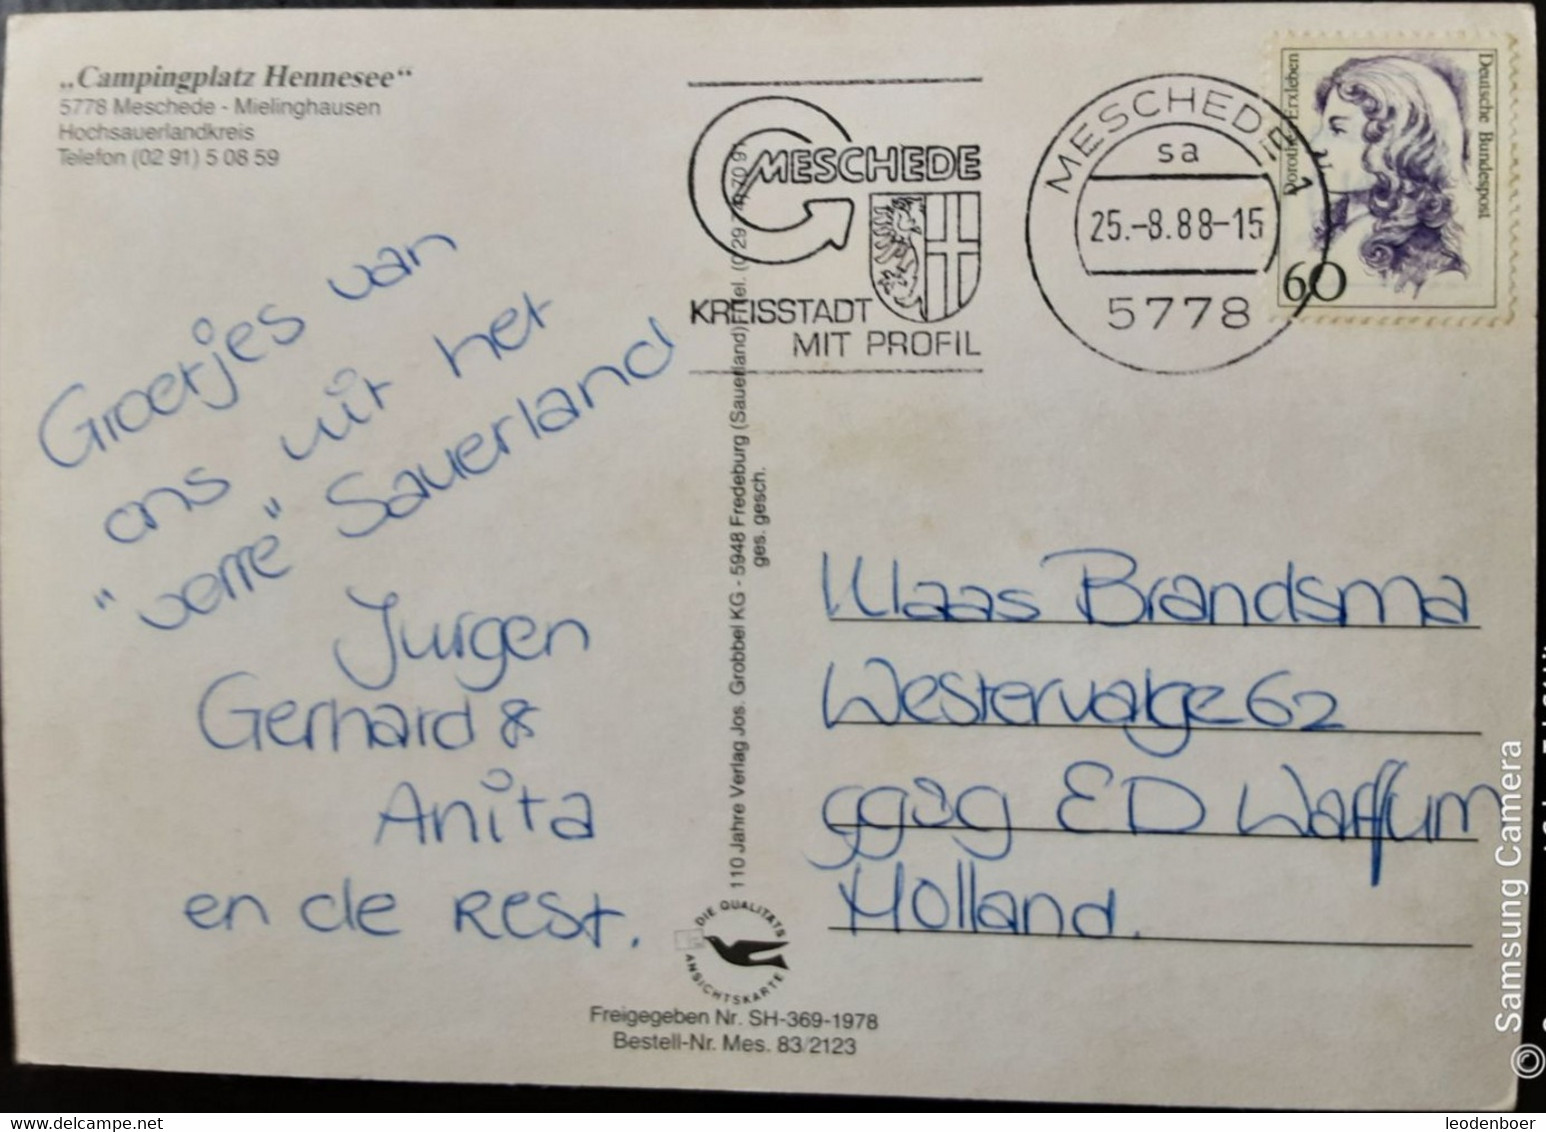 „Campingplatz Hennesee“
5778 Meschede - Mielinghausen
Hochsauerlandkreis
Telefon (02 91) 5 08 59
MESCHEDE
KREISSTADT
MIT PROFIL
MESCHEDE 1
sa
25.-8.88-15
5778
Dorothea Erxleben
Deutsche Bundespost
60
Groetjes van
ons uit het
"verre" Sauerland
Jurgen
Gerhard &
Anita
en de Rest.
110 Jahre Verlag Jos. Grobbel KG - 5948 Fredeburg (Sauerland)
ges. gesch.
Klaas Brandsma
Westervalge 62
ED Warffum
Holland.
DIE QUALITÄTS
ANSICHTSKARTE
Freigegeben Nr. SH-369-1978
Bestell-Nr. Mes. 83/2123
© Samsung Camera
leodenboer